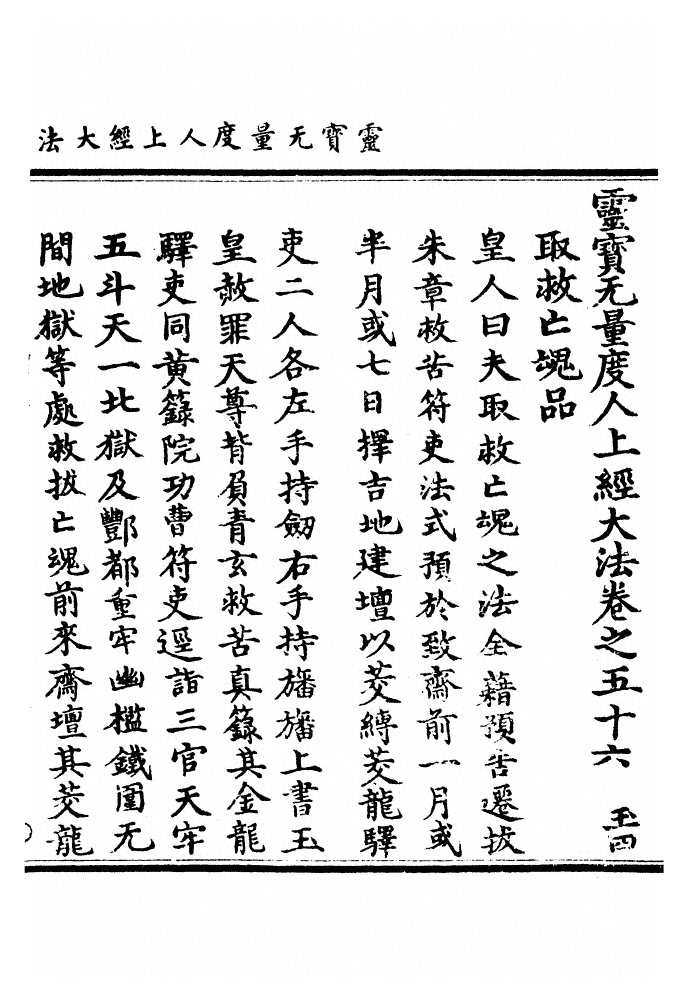 靈寶无量度人上經大法
靈寶无量度人上經大法卷之五十六　玉四
取救亡魂品
皇人曰夫取救亡魂之法全藉預告遷拔
朱章救苦符吏法式預於致齋前一月或
半月或七日擇吉地建壇以茭縛茭龍驛
吏二人各左手持劒右手持旛旛上書玉
皇赦罪天尊背負青玄救苦真籙其金龍
驛吏同黄籙院功曹符吏逕詣三官天牢
五斗天一北獄及酆都重牢幽檻鐵圍无
間地獄等處救拔亡魂前來齋壇其茭龍